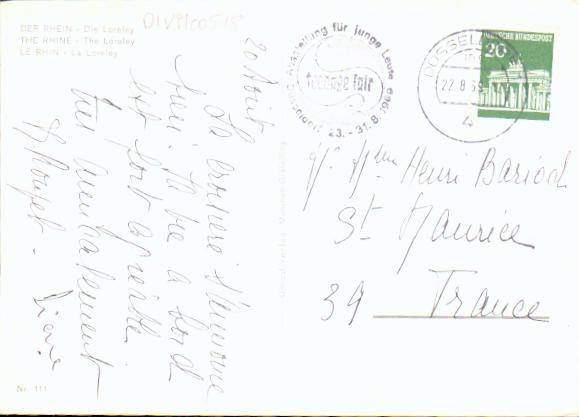 DER RHEIN - Die Loreley
THE RHINE - The Loreley
LE RHIN - La Loreley
DIVPICO0518
20 Aout
La croisiere s'annonce
. La vie a bord
est fort agréable
Amicalement
Nr. 111
Ausstellung für junge Leute
teenage fair
Düsseldorf 23. - 31.8.1969
DÜSSELDORF
22.8.69
DEUTSCHE BUNDESPOST
20
Mr Mme Henri Bariod
St Maurice
39 France